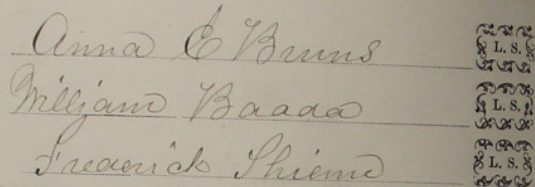 Anna E Bruns L. S.
William Baada L. S.
Frederick Thieme L. S.